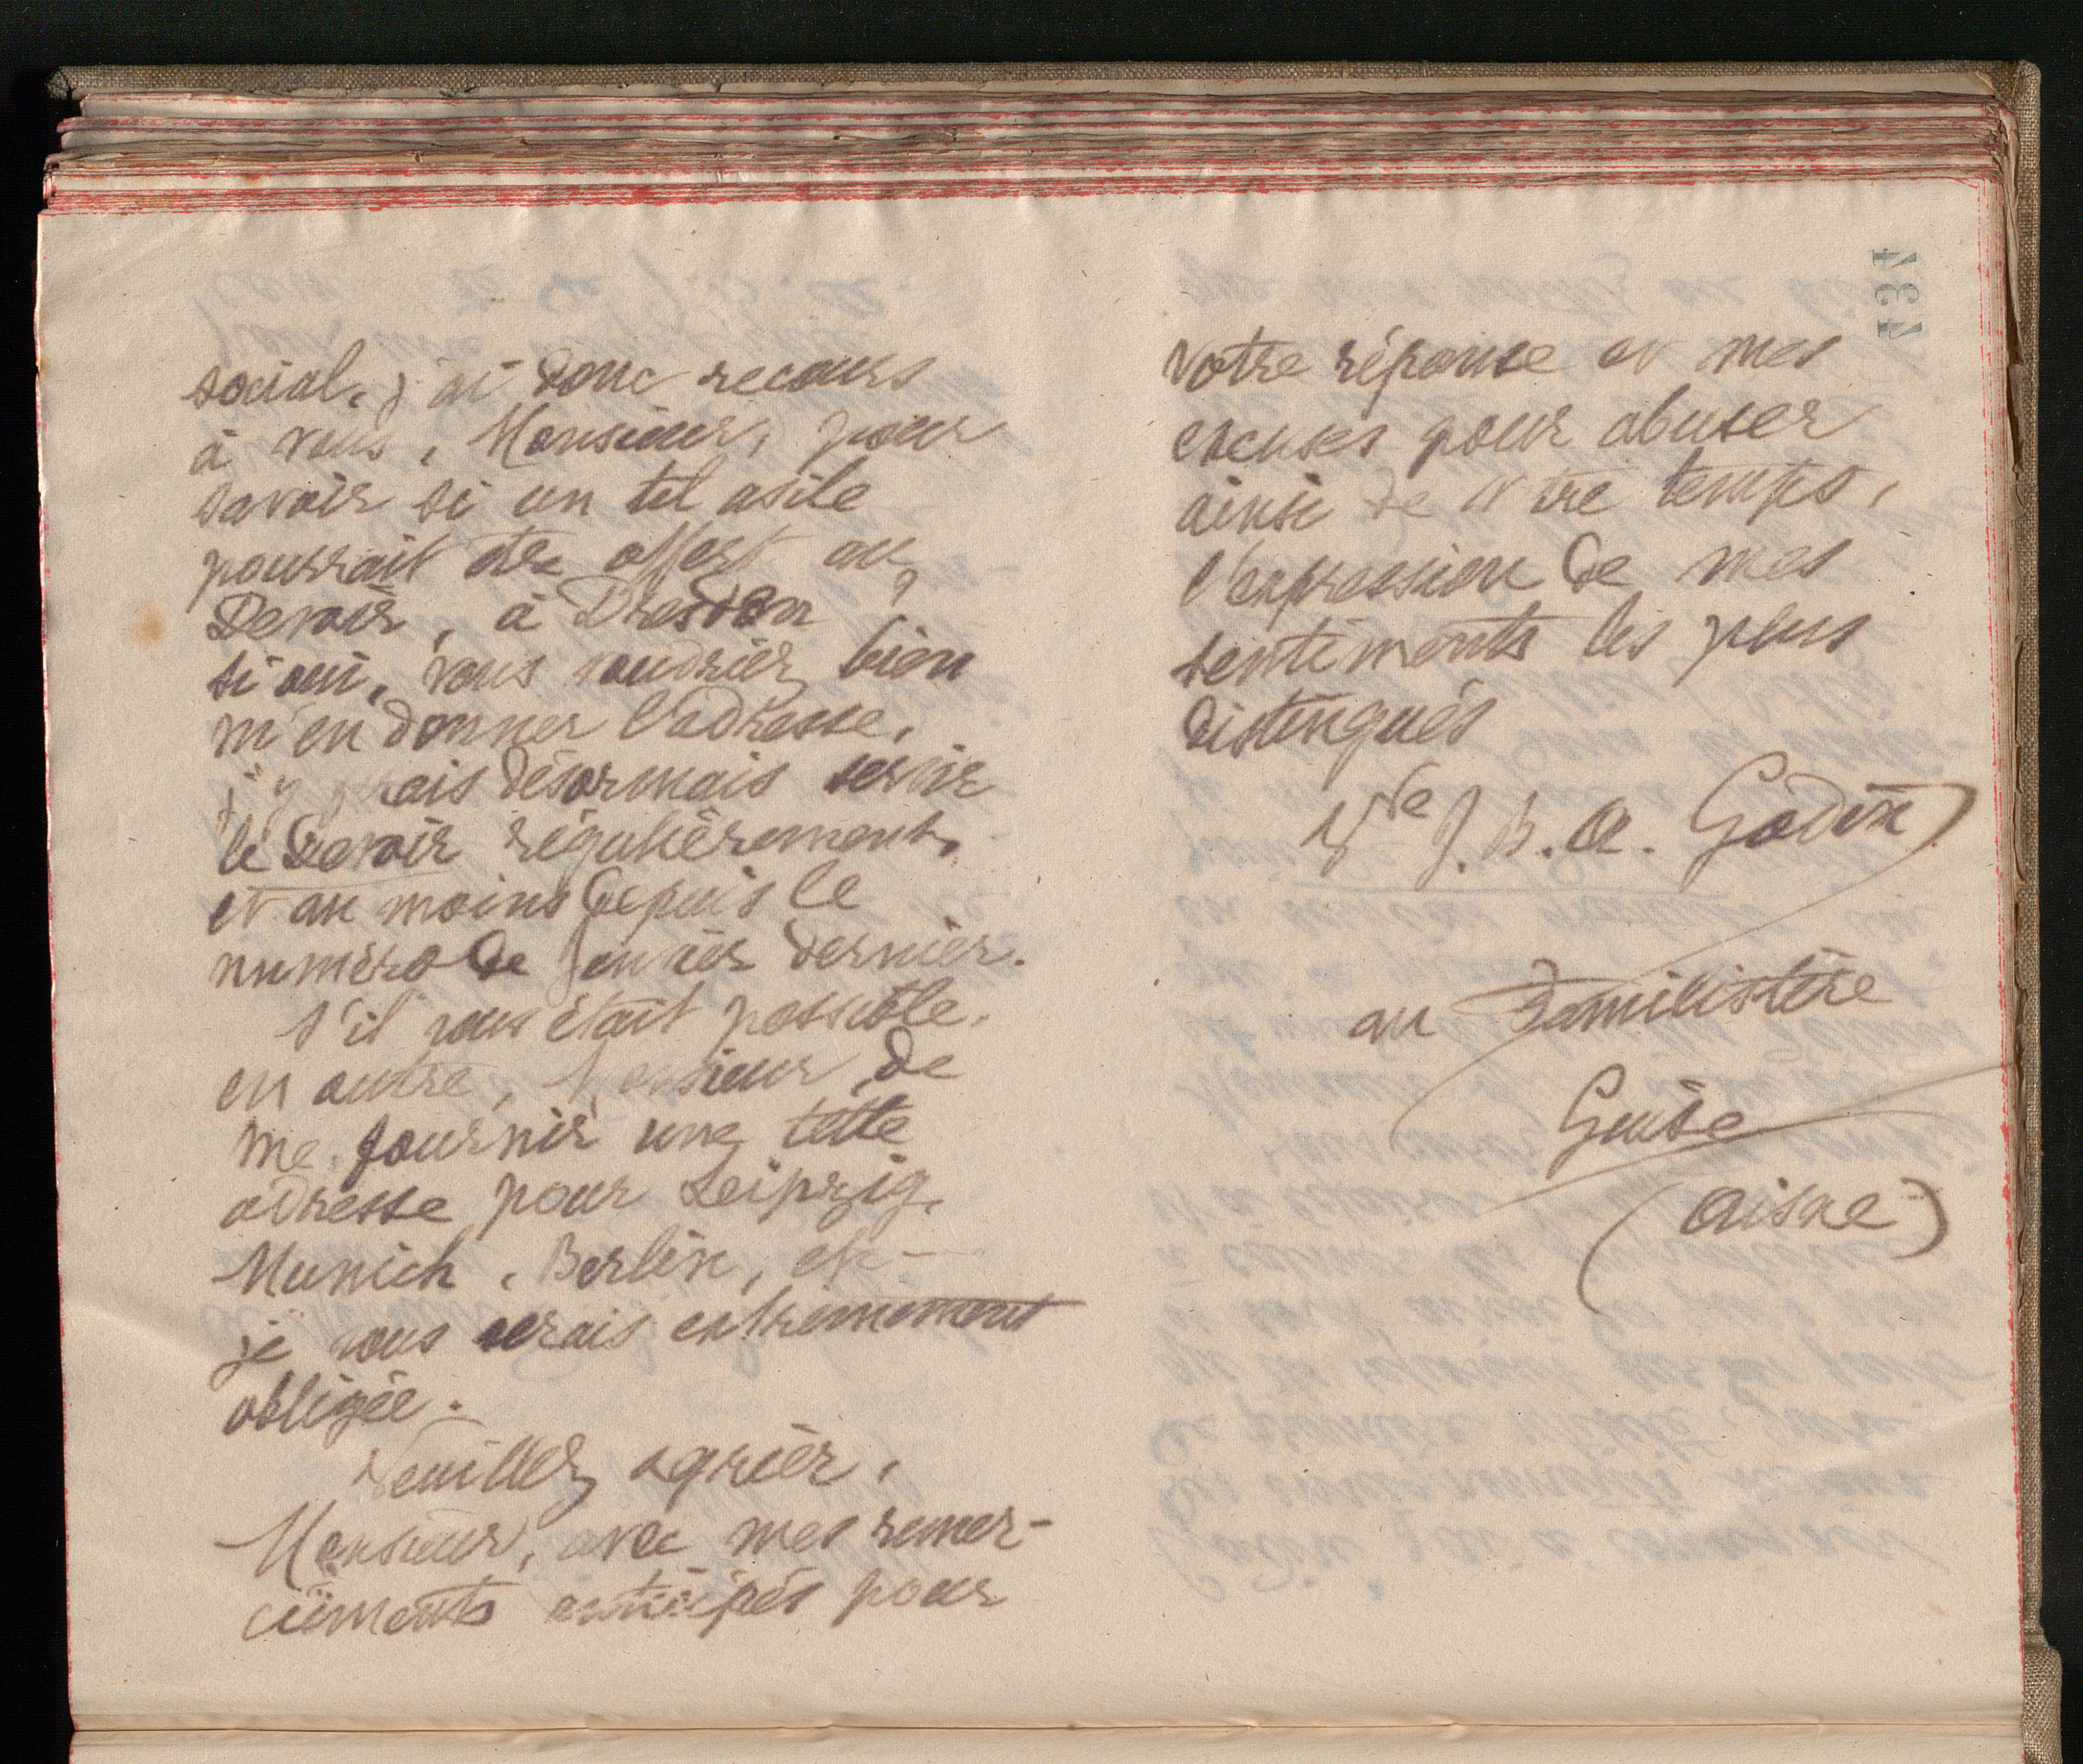 social. J'ai donc recours
à vous, Monsieur, pour
savoir si un tel asile
pourrait être offert au
Devoir, à Dresden ?
Si oui, vous voudriez bien
m'en donner l'adresse.
J'y ferais désormais servir
le Devoir régulièrement,
et au moins depuis le
numéro de Janvier dernier.
S'il vous était possible,
en outre, Monsieur, de
me fournir une telle
adresse pour Leipzig,
Munich, Berlin, etc
je vous serais extrêmement
obligée.
Veuillez agréer,
Monsieur, avec mes remer-
ciements anticipés pour
votre réponse et mes
excuses pour abuser
ainsi de votre temps,
l'expression de mes
sentiments les plus
distingués
Vve J. B. A. Godin
au Familistère
Guise
(Aisne)